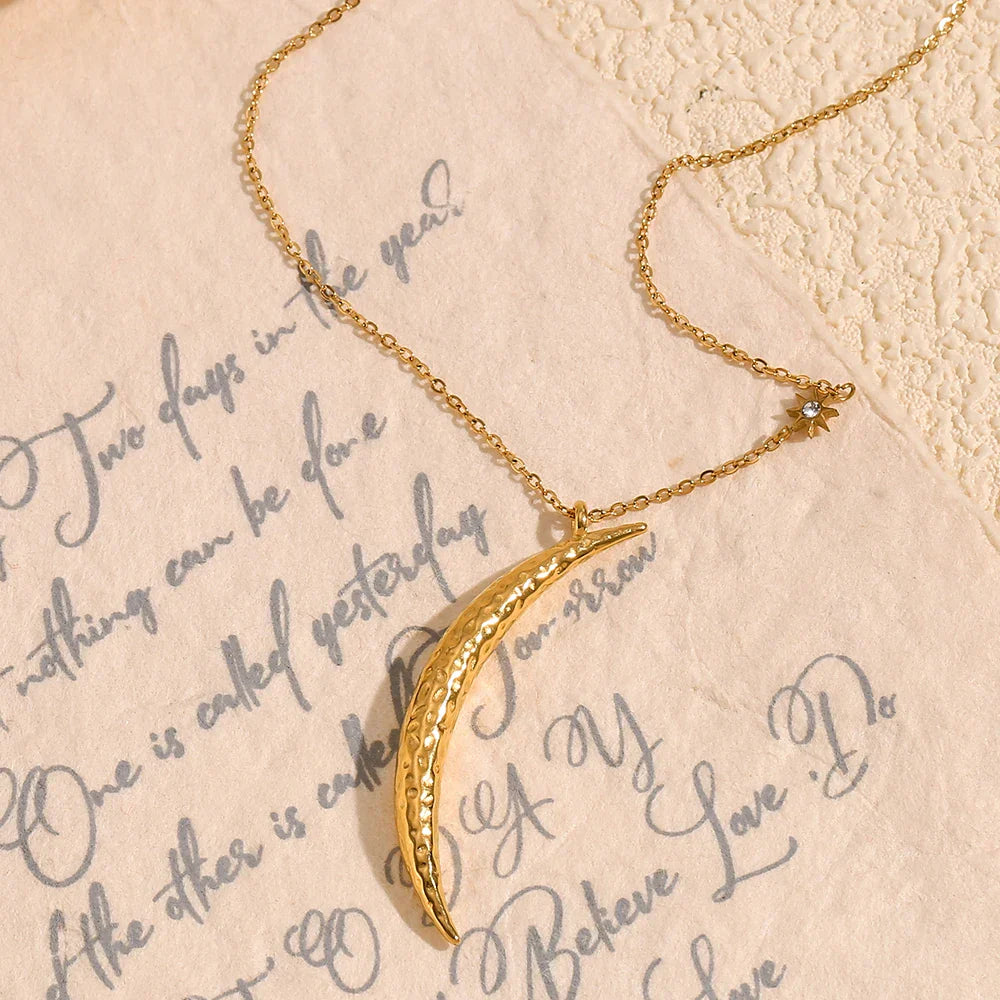 Two days in the year
nothing can be done
One is called yesterday
the other is called Tomorrow
O A Y Do
Believe Love